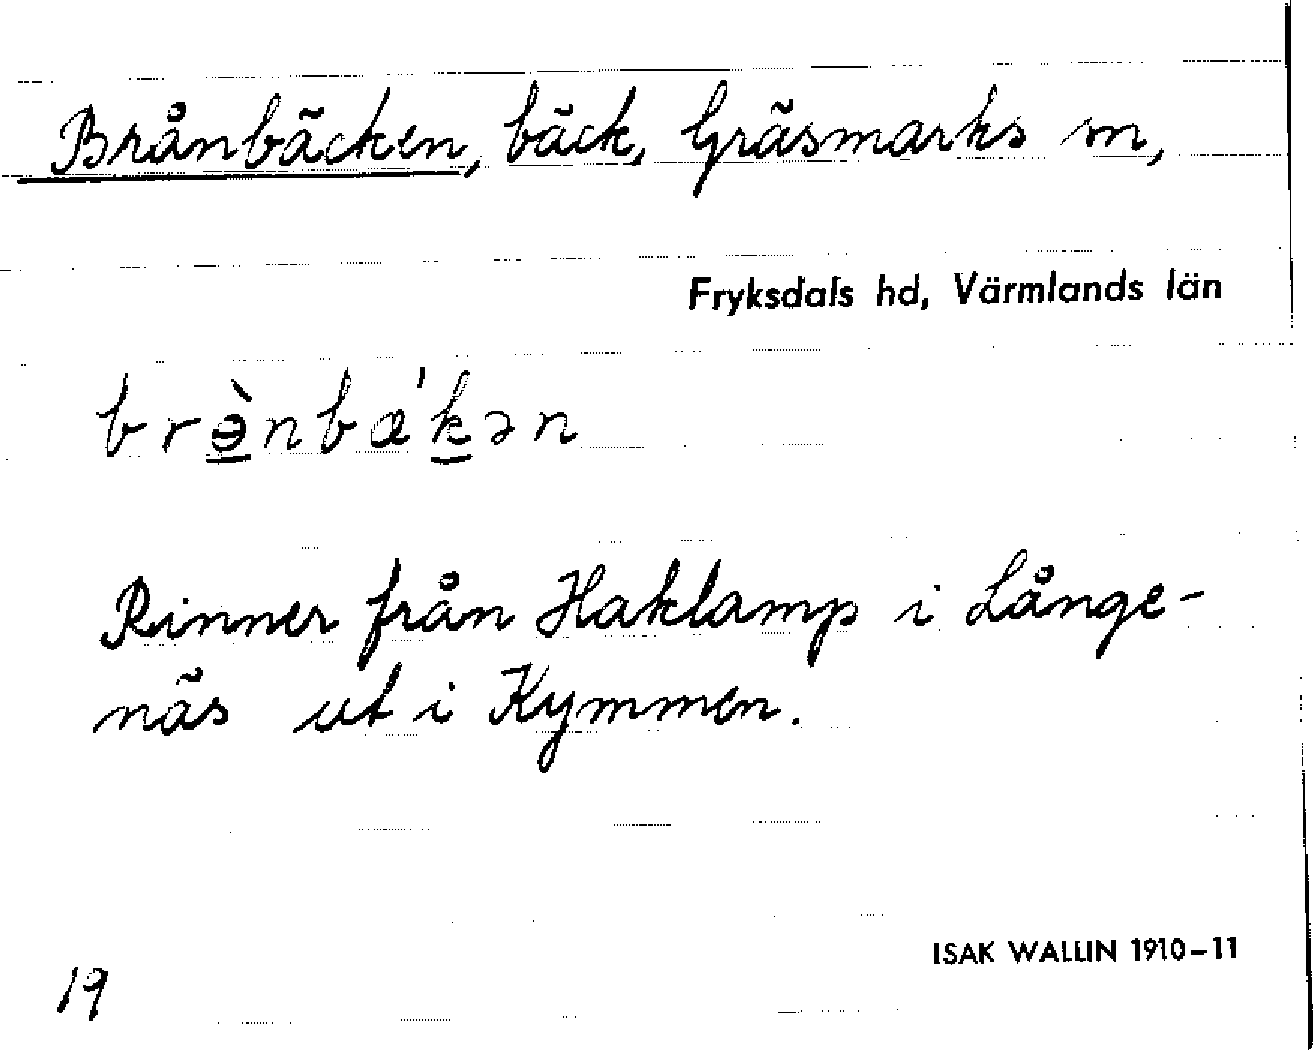 Brånbäcken, bäck, Gräsmarks sn,
Fryksdals hd, Värmlands län
brə̲̀nbæ'k̲ən
Rinner från Haklamp i Långe-
näs ut i Kymmen.
ISAK WALLIN 1910-11
19